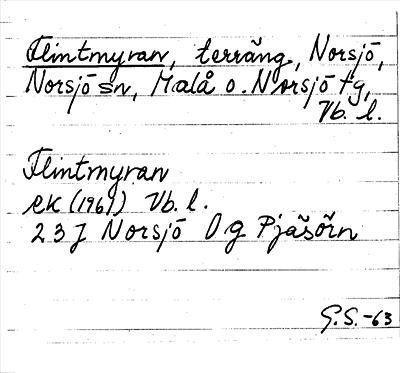 Flintmyran, terräng, Norsjö,
Norsjö sn, Malå o. Norsjö tg,
Vb. l.
Flintmyran
ek (1961) Vb. l.
23 J Norsjö 0 g Pjäsörn
G.S.-63